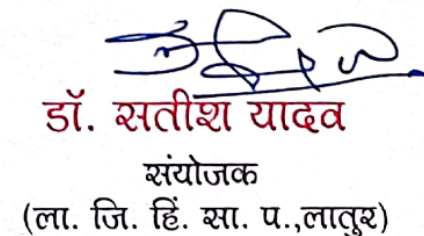 डॉ. सतीश यादव
संयोजक
(ला. जि. हिं. सा. प.,लातुर)